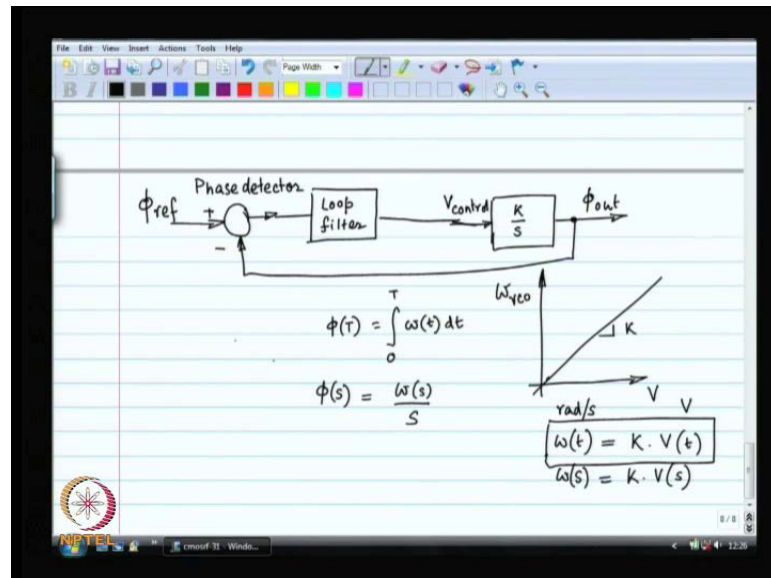 File Edit View Insert Actions Tools Help
Page Width
B I
Phase detector
ϕref + −
Loop
filter
Vcontrol
K
S
ϕout
ϕ(T) = ∫ ω(t) dt
T
0
ϕ(s) = ω(s)
S
ωvco
K
V
rad/s V
ω(t) = K . V(t)
ω(s) = K . V(s)
8/8
NPTEL
cmosrf-31 - Windo...
12:26